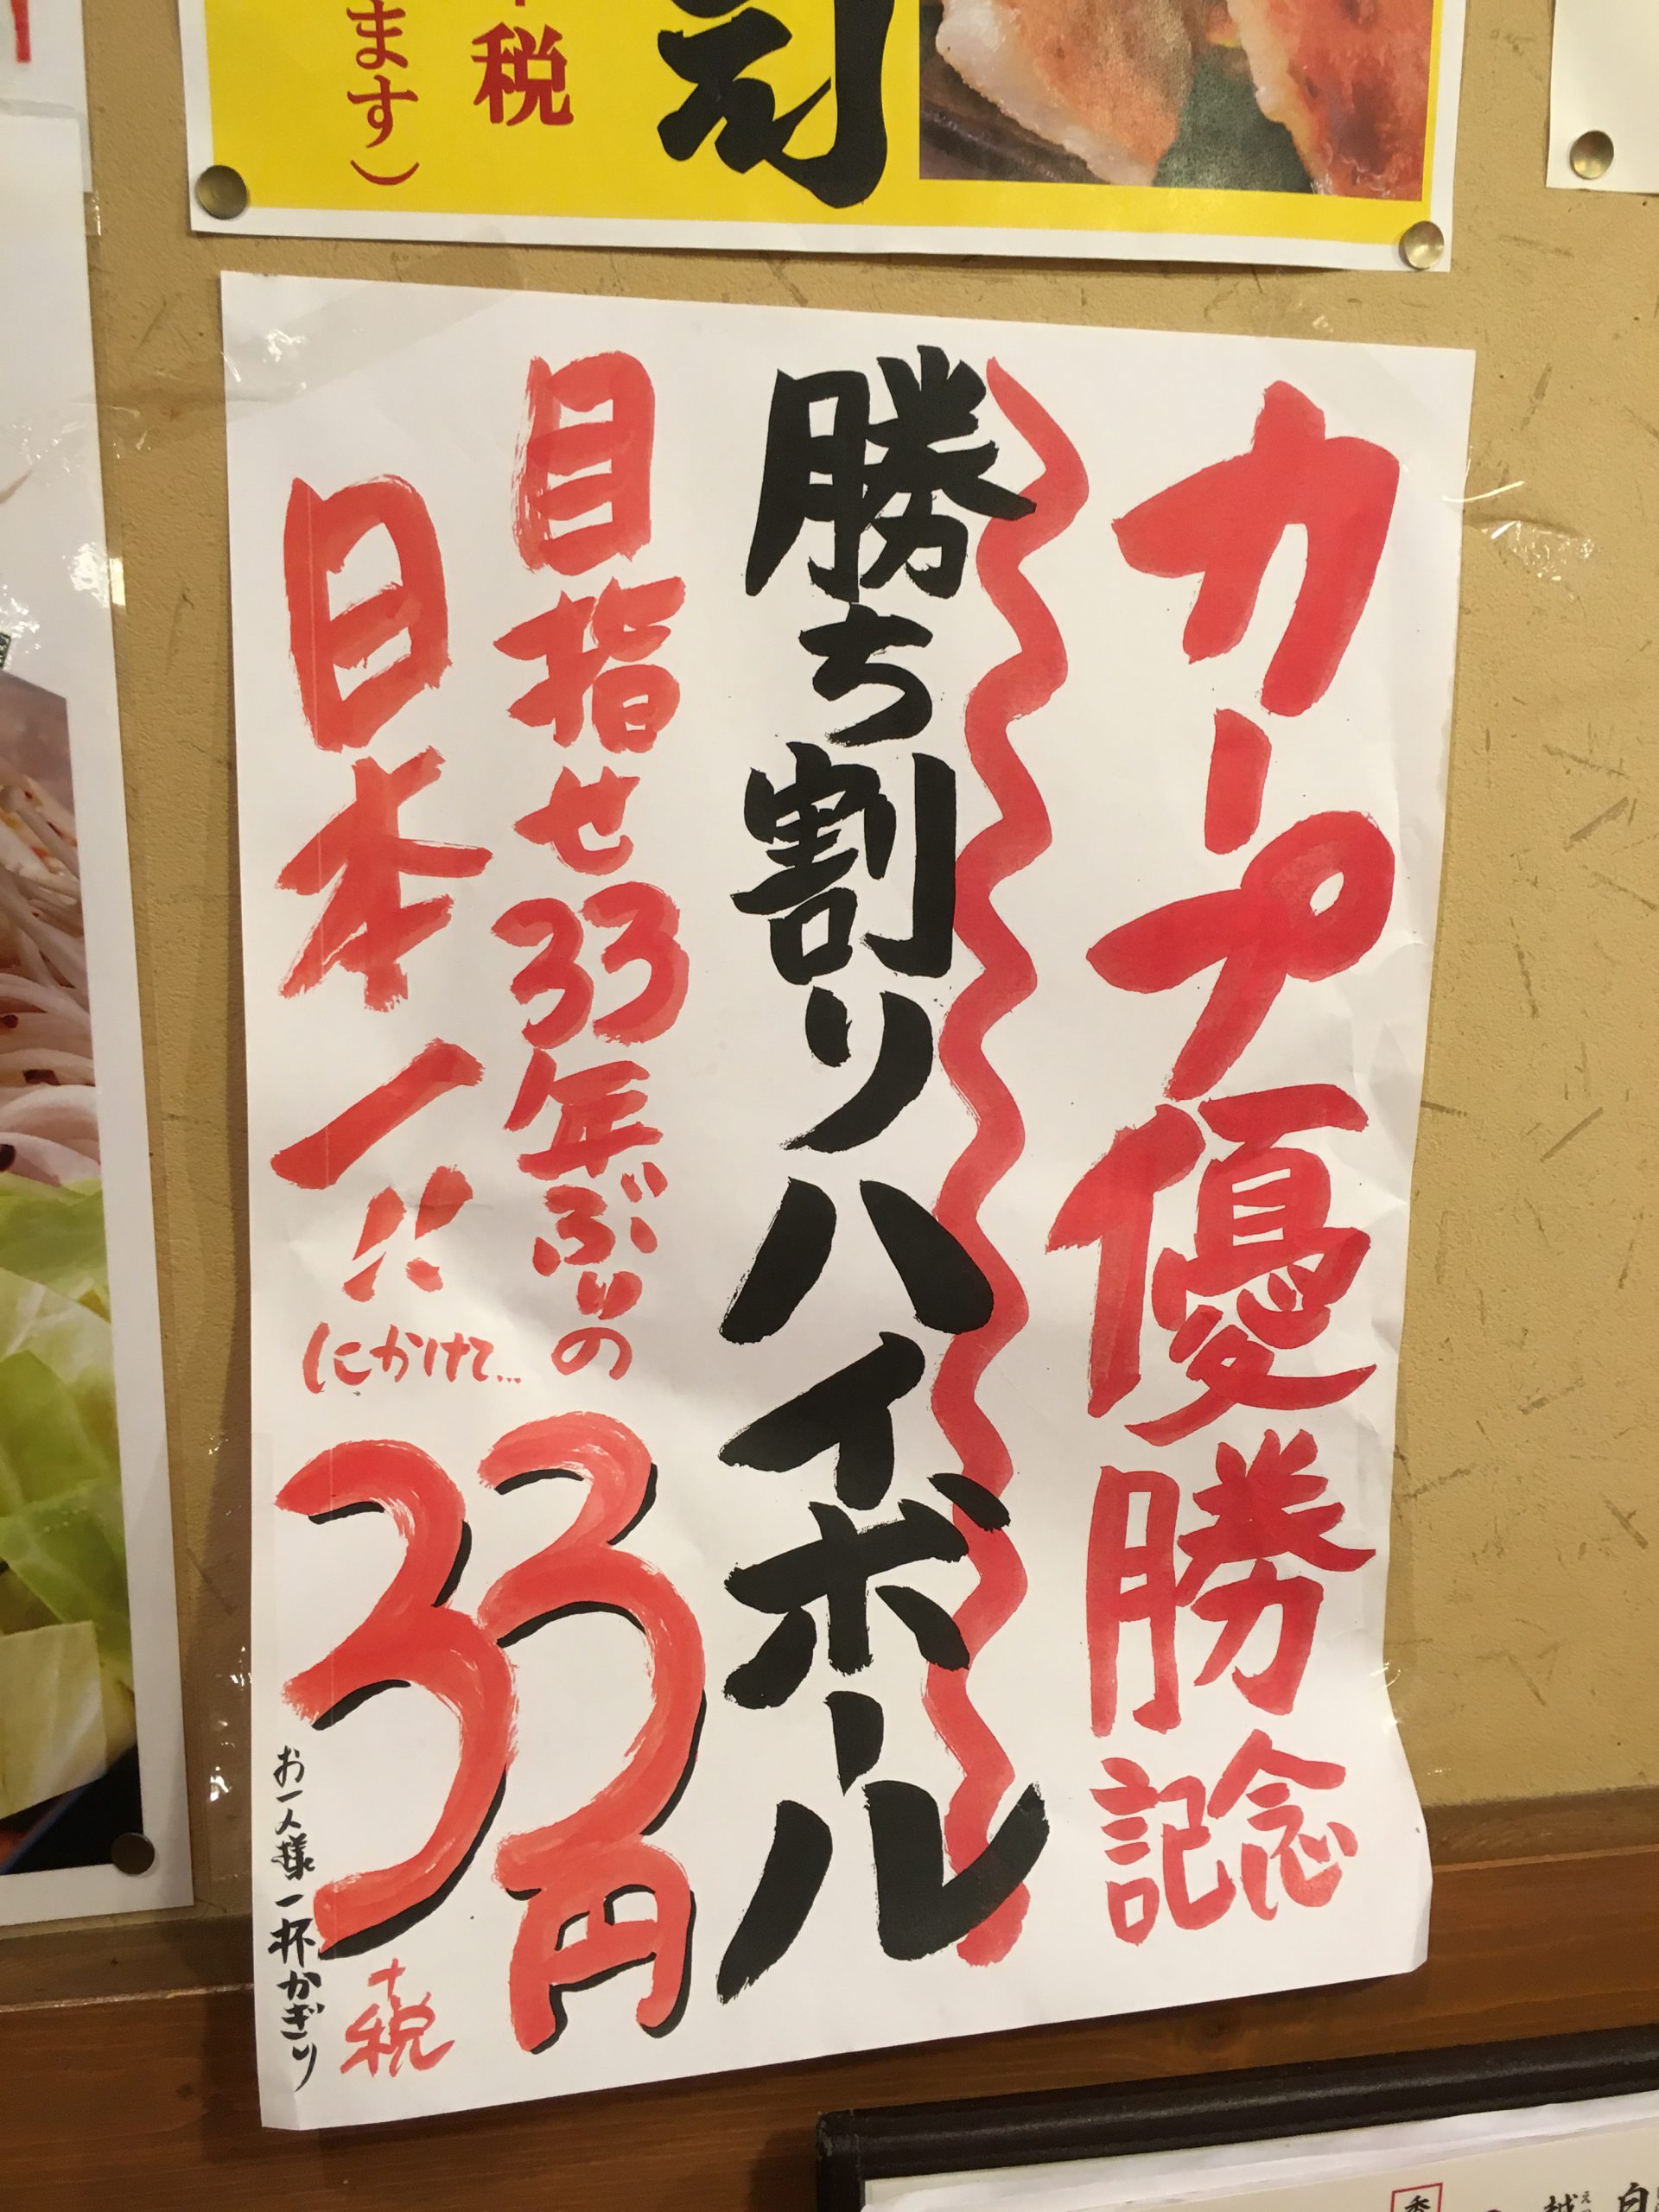 ます）
税
司
カープ優勝記念
勝ち割りハイボール
目指せ33年ぶりの
日本一!!
にかけて…
33円
+税
お一人様一杯かぎり